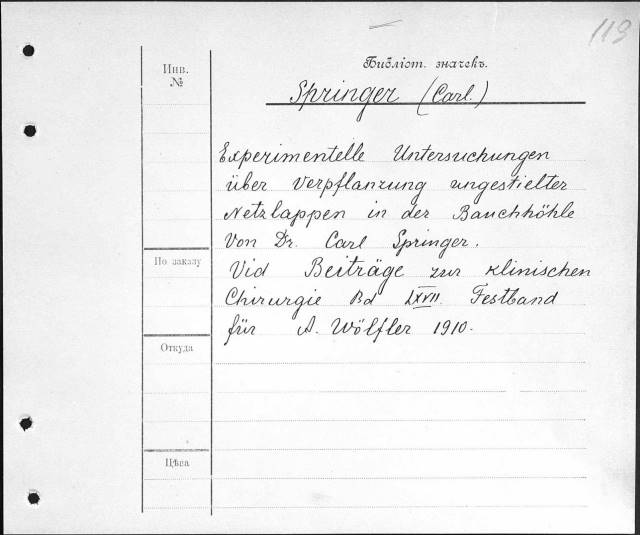 119
Инв.
№
Библіот. значекъ.
Springer (Carl.)
Experimentelle Untersuchungen
über Verpflanzung ungestielter
Netzlappen in der Bauchhöhle
Von Dr. Carl Springer.
Vid Beiträge zur klinischen
Chirurgie Bd LXVII. Festband
für A. Wölfler 1910.
По заказу
Откуда
Цѣна